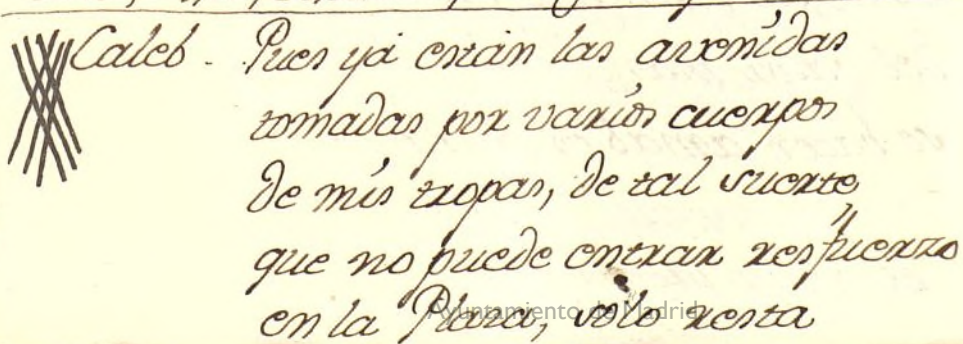 Caleb - Pues yá están las avenídas
tomadas por varíos cuerpos
de mís tropas, de tal suerte,
que no puede entrar resfuerzo
en la Plaza, sólo resta
Ayuntamiento de Madrid